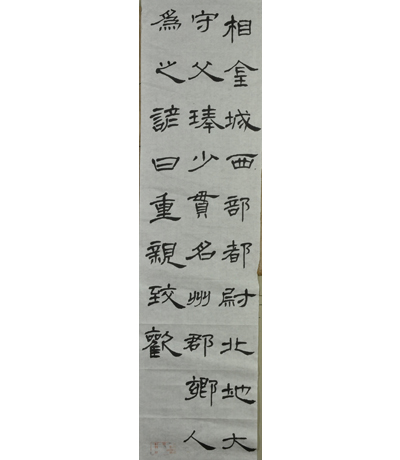 相金城西部都尉北地大
守父琫少貫名州郡鄉人
爲之諺曰重親致歡